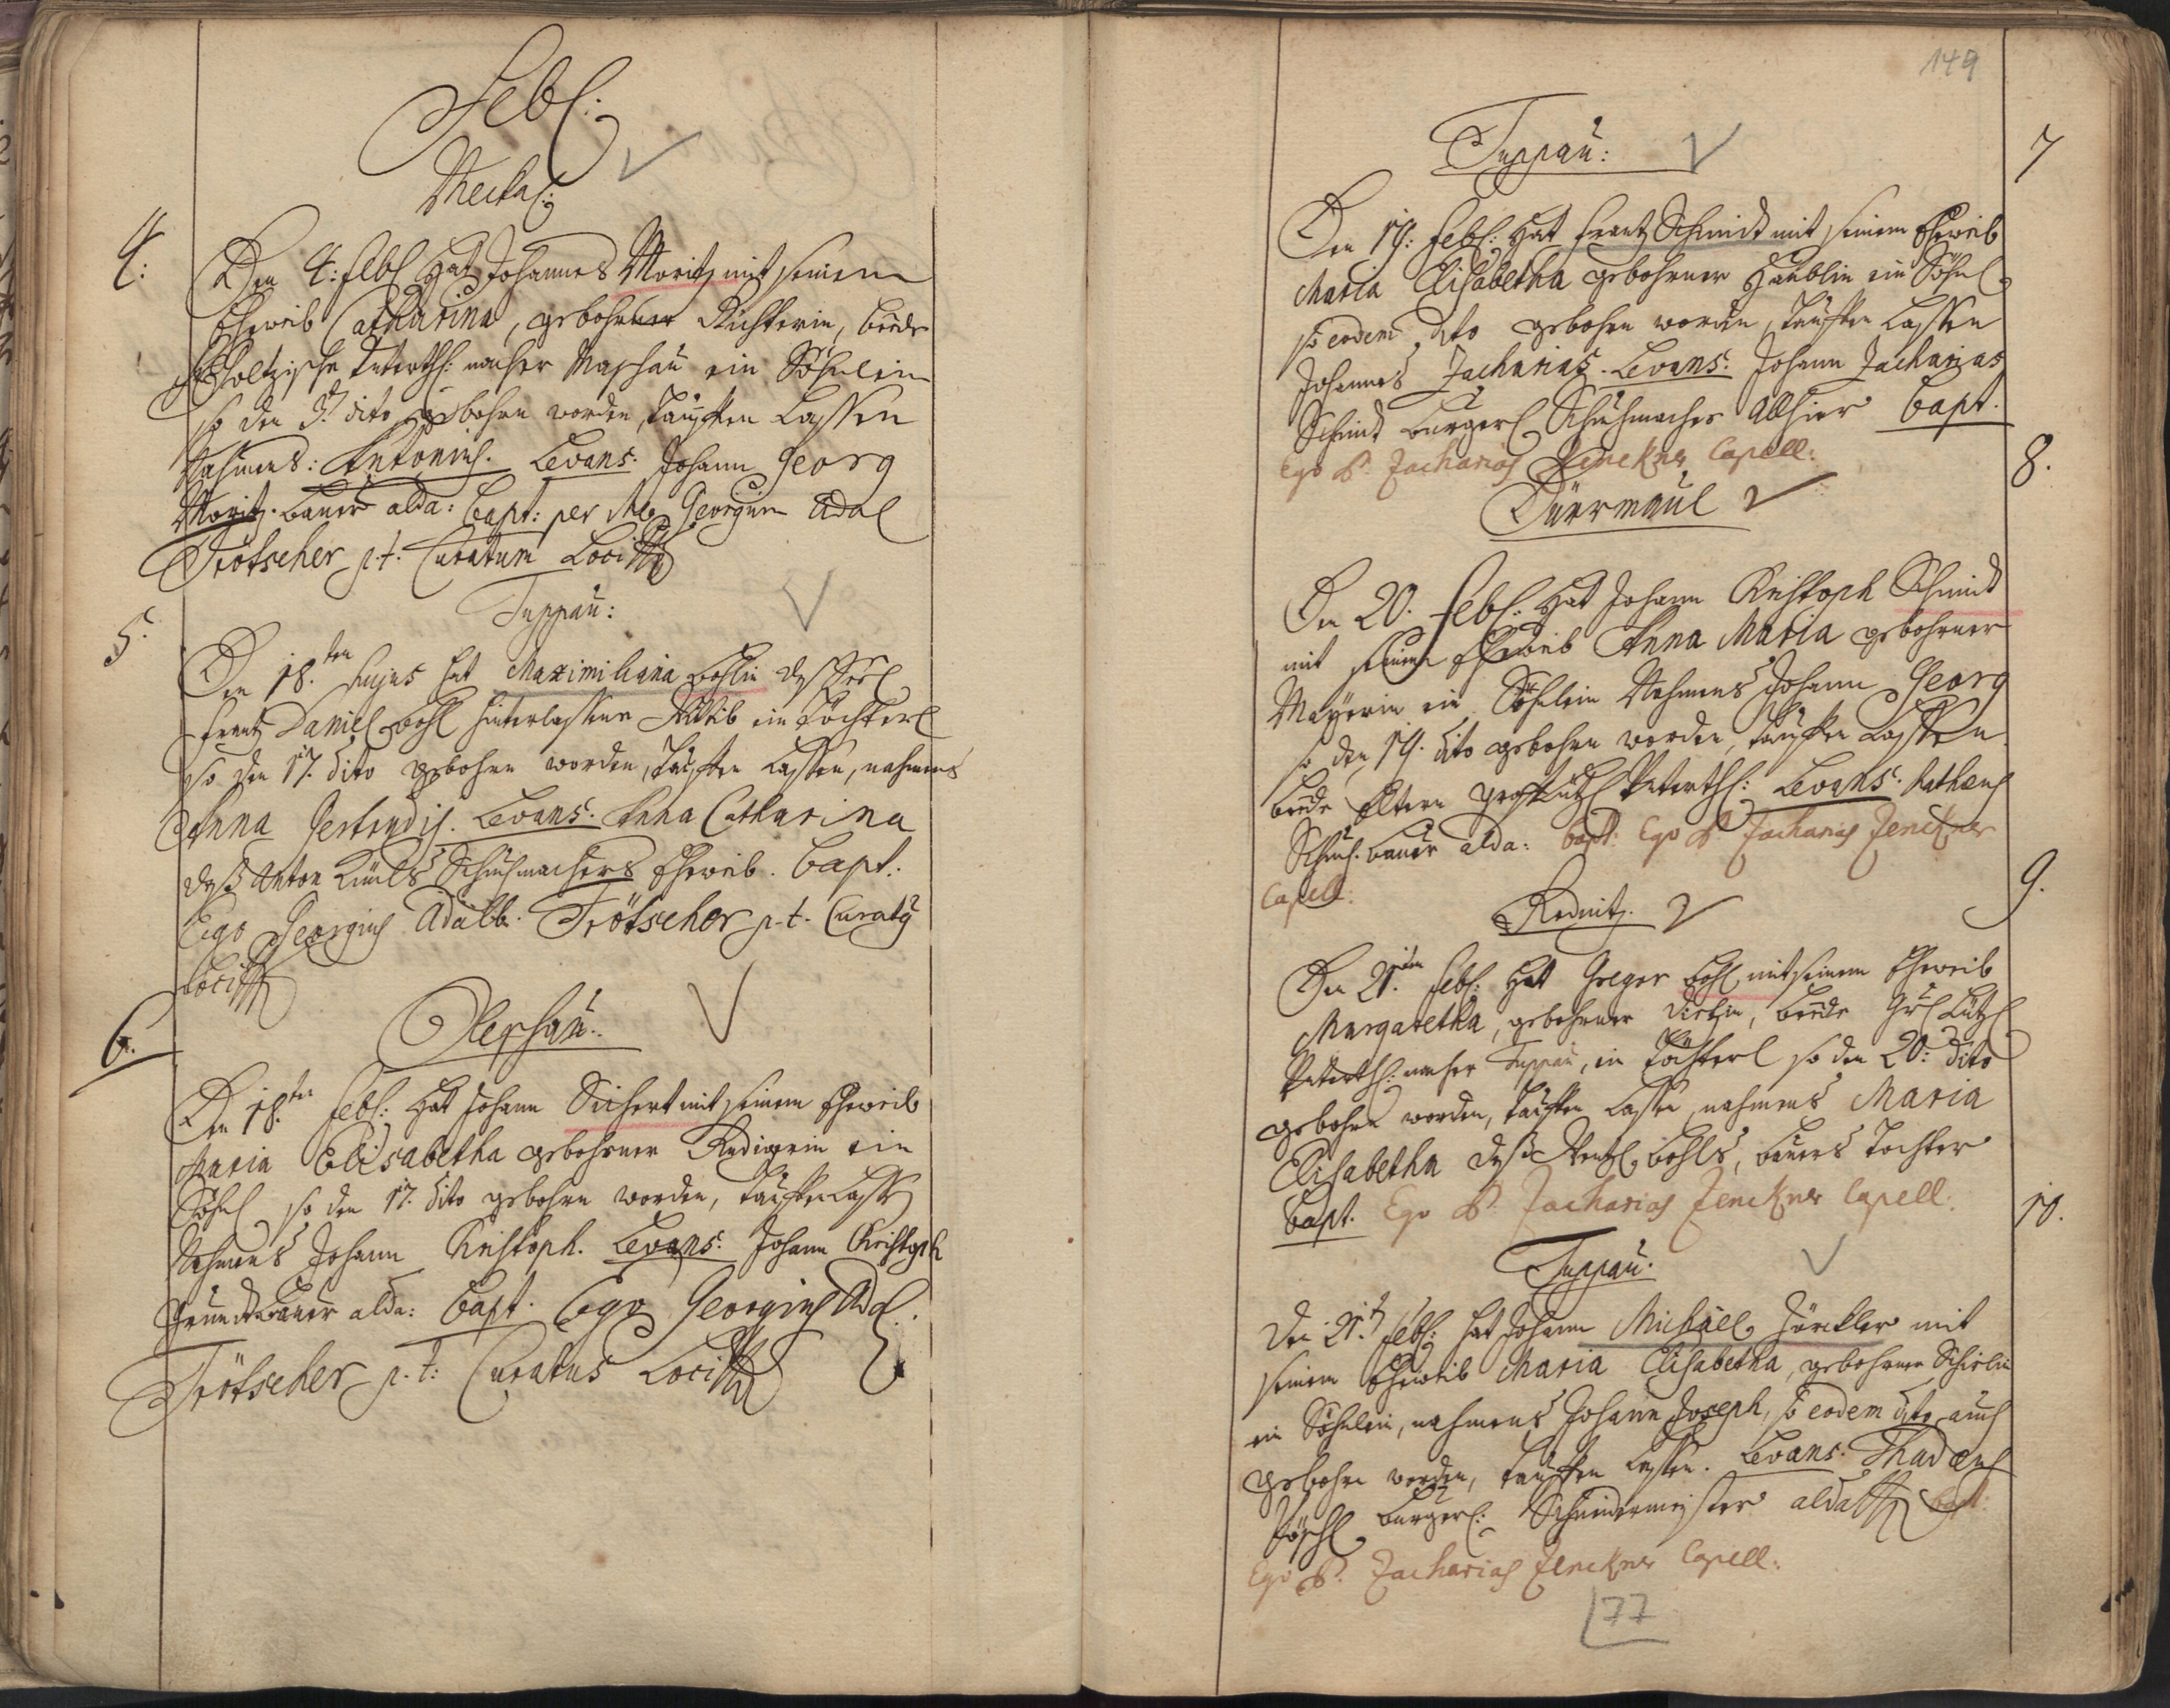 Febl:
Meckl:
4.
Den 4: Febl Hat Johannes Moritz mit seinem
Eheweib Catharina, gebohrner Richterin, beede
Unterth: nacher Maschau ein Söhnlein
so den 3. dito gebohren worden, Tauffen Lassen
Nahmens: Antonius. Levans: Johann Georg
Moritz. bauer alda: Bapt: per Me Georgium Adal
Trötscher p.t. Curatum Loci
5.
Tuppau:
Den 18.ten hujus hat Maximiliana bohlin deß
Frantz Daniel bohl hinterlassene Wittib ein Töchterl
so den 17. dito gebohren worden, Tauffen Lassen, nahmens
Anna Gertrudis. Levans. Anna Catharina
deß Anton Schuhmachers Eheweib. Bapt:
Ego Georgius Adalb. Trötscher p.t. Curatus
Loci
6.
Olleschau:
Den 18.ten Febl: Hat Johann Sichert mit seinem Eheweib
Maria Elisabetha gebohrner Redigerin ein
Söhnl so den 17. dito gebohren worden, Tauffen Lassen
Nahmens Johann Christoph. Levans: Johann Christoph
Grundt bauer alda: Bapt. Ego Georgius Adal.
Trötscher p.t: Curatus Loci
149
Tuppau:
7
Den 19: Febl: Hat Frantz Schmidt mit seinem Eheweib
Maria Elisabetha gebohrner ein Söhnl
so eodem dito gebohren worden, Tauffen Lassen
Johannes Zacharias. Levans: Johann Zacharias
Schmidt burgerl Schuhmacher allhier Bapt.
Ego P. Zacharias Zenckner Capell:
8.
Dürrmaul
Den 20. Febl: Hat Johann Christoph Schmidt
mit seinem Eheweib Anna Maria gebohrner
Mayerin ein Söhnlein Nahmens Johann Georg
so den 19. dito gebohren worden, Tauffen Lassen
beede Eltern Unterth: Levans. Mathaeus
Schuh. bauer alda: Bapt: Ego P. Zacharias Zenckner
Capell:
9.
Rednitz.
Den 21.ten Febl: Hat Gregor bohl mit seinem Eheweib
Margaretha, gebohrner Dietzin, beede
Unterth: nacher Tuppau, ein Töchterl so den 20: dito
gebohren worden, Tauffen Lassen, nahmens Maria
Elisabetha deß Wentzl bohls, bauers Tochter
Bapt. Ego P. Zacharias Zenckner Capell:
10.
Tuppau.
Den 21.t Febl: hat Johann Michael mit
seinem Eheweib Maria Elisabetha, gebohrner
ein Söhnlein, nahmens Johann Joseph, so eodem dito auch
gebohren worden, Tauffen Lassen. Levans: Thadaeus
burgerl: Schneidermeister alda Bapt:
Ego P. Zacharias Zenckner Capell:
77